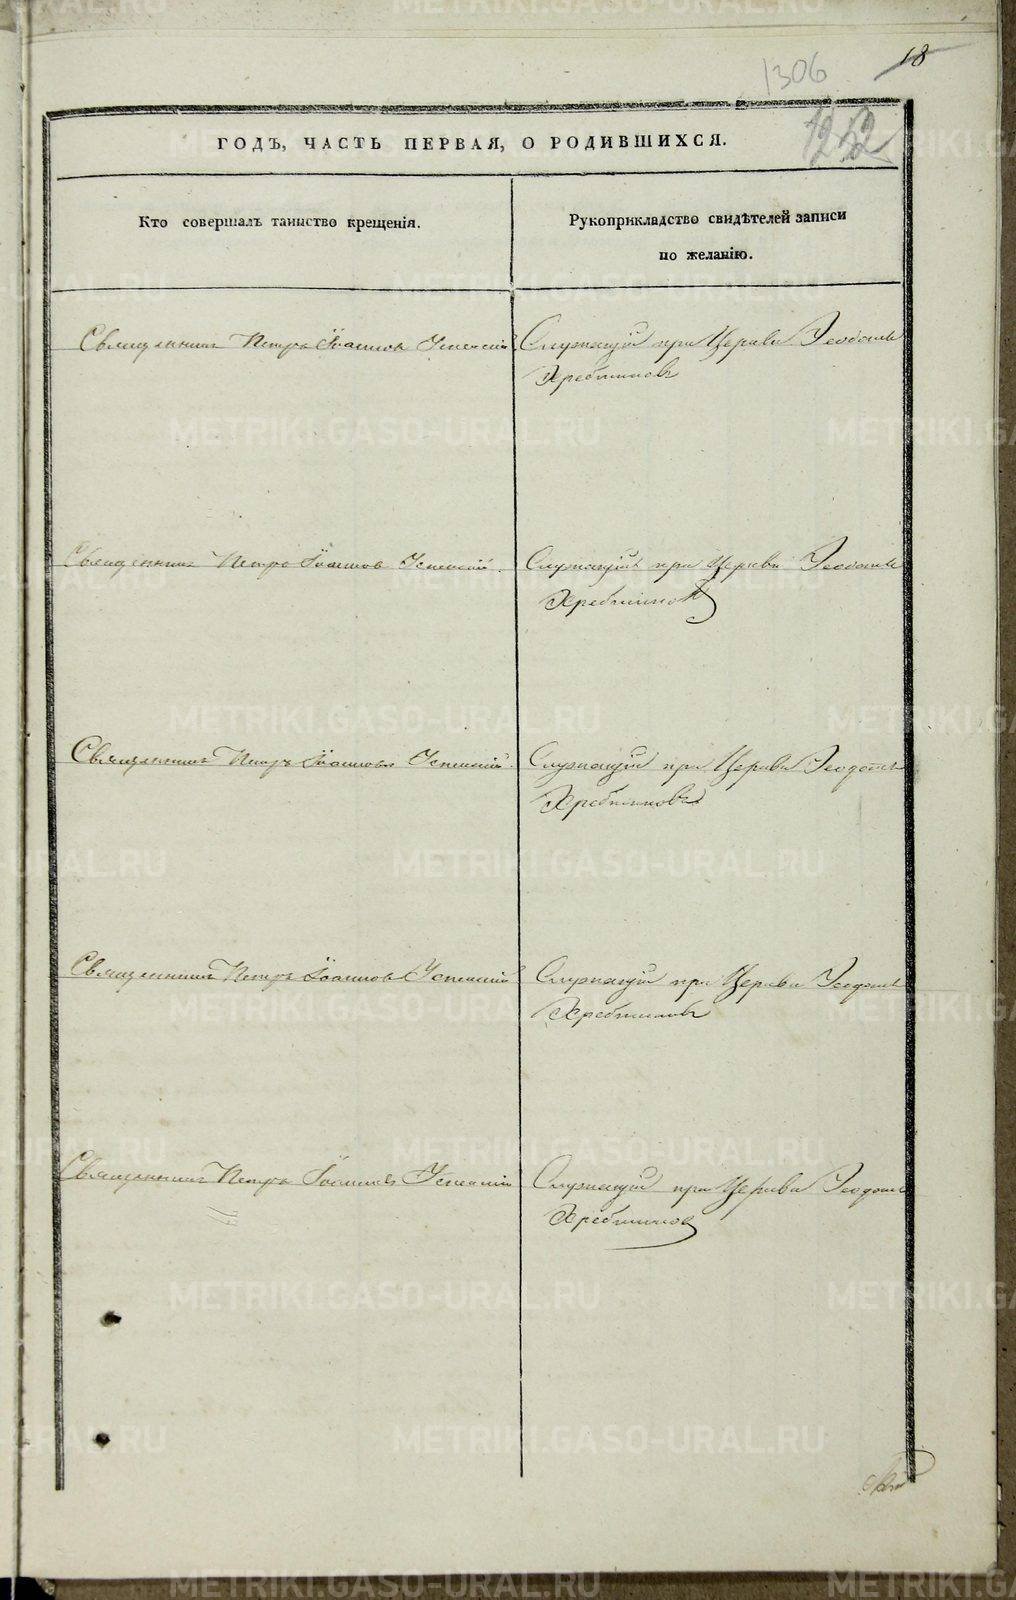 18
1306
1252
ГОДЪ, ЧАСТЬ ПЕРВАЯ, О РОДИВШИХСЯ.
Кто совершалъ таинство крещенія.
Рукоприкладство свидѣтелей записи
по желанію.
Священникъ Петръ Іоанновъ Успенскій.
Служащій при Церкви Ѳеодотъ
Хребтиковъ
Священникъ Петръ Іоанновъ Успенскій.
Служащій при Церкви Ѳеодотъ
Священникъ Петръ Іоанновъ Успенскій.
Служащій при Церкви Ѳеодотъ
Священникъ Петръ Іоанновъ Успенскій
Служащій при Церкви Ѳеодотъ
Священникъ Петръ Іоанновъ Успенскій
Служащій при Церкви Ѳеодотъ
METRIKI.GASO-URAL.RU